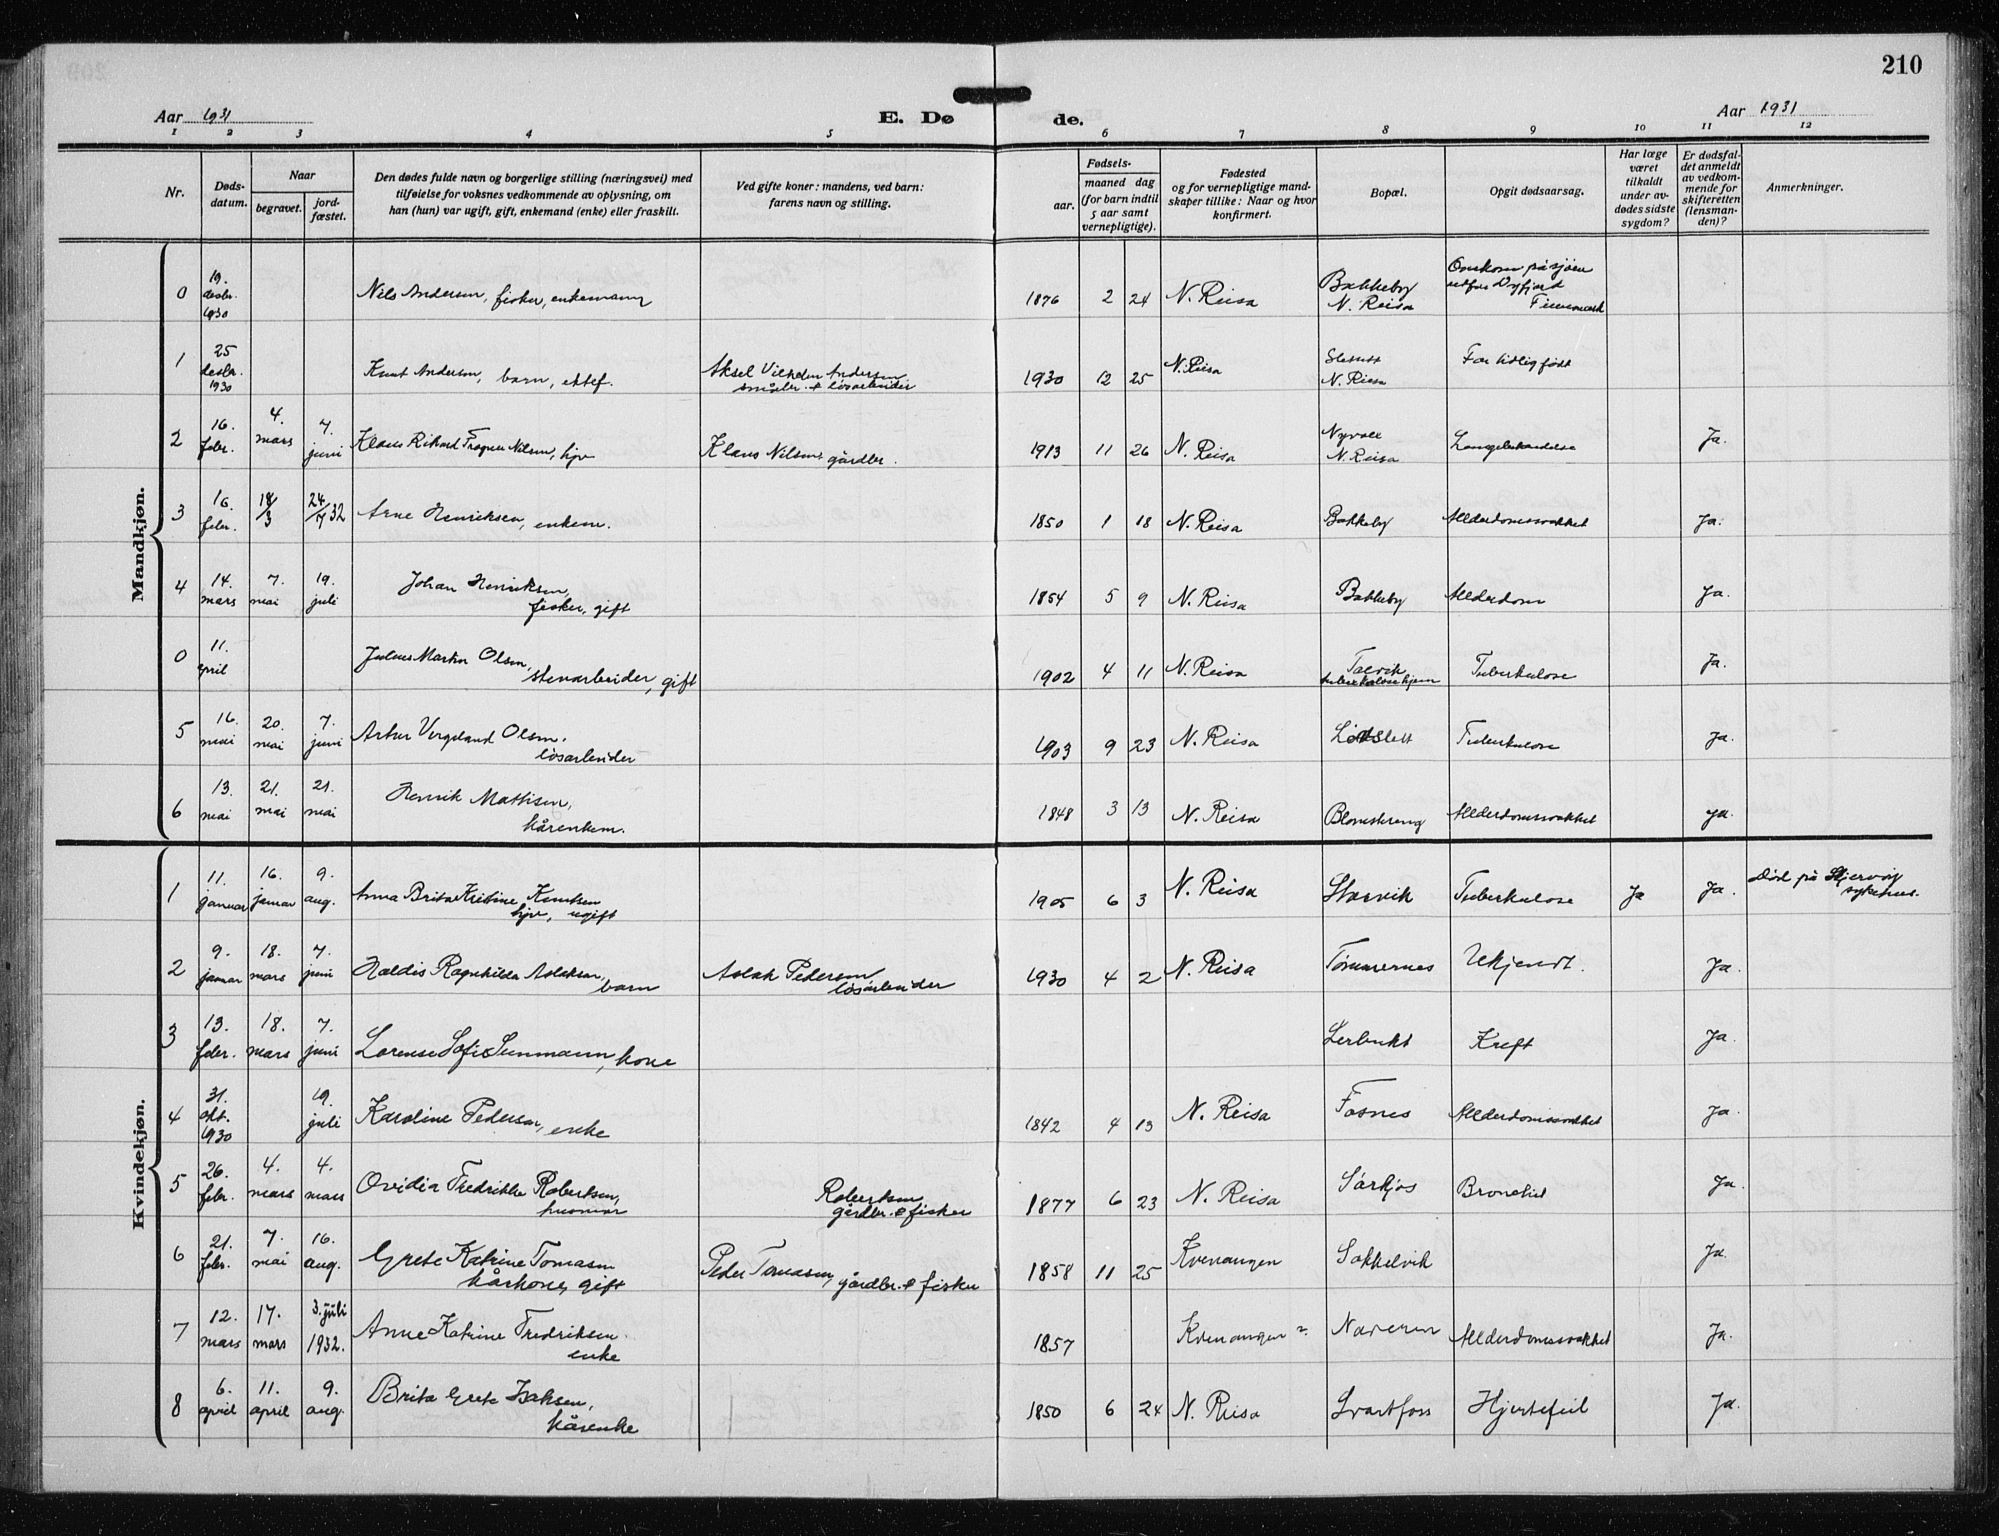 210
Aar 1931
E. Dø
de.
Aar 1931
1 2 3 4 5 6 7 8 9 10 11 12
Nr.
Døds-
datum.
Naar
begravet.
jord-
fæstet.
Den dødes fulde navn og borgerlige stilling (næringsvei) med
tilføielse for voksnes vedkommende av oplysning, om
han (hun) var ugift, gift, enkemand (enke) eller fraskilt.
Ved gifte koner: mandens, ved barn:
farens navn og stilling.
Fødsels-
aar.
maaned dag
(for barn indtil
5 aar samt
vernepligtige).
Fødested
og for vernepligtige mand-
skaper tillike: Naar og hvor
konfirmert.
Bopæl.
Opgit dødsaarsag.
Har læge
været
tilkaldt
under av-
dødes sidste
sygdom?
Er dødsfal-
det anmeldt
av vedkom-
mende for
skifteretten
(lensman-
den)?
Anmerkninger.
Mandkjøn.
0 19. desbr. 1930 Nils Andersen, fisker, enkemann 1876 2 24 N. Reisa Bakkeby N. Reisa Omkom på sjøen
1 25 desbr. 1930 Knut Andersen, barn, ektef. Aksel Vilhelm Andersen småbr. & løsarbeider 1930 12 25 N. Reisa N. Reisa For tidlig født
2 16. febr. 4. mars 7. juni Klaus Rikard Nilsen, hjv Klaus Nilsen gårdbr. 1913 11 26 N. Reisa N. Reisa Ja.
3 16. febr. 18/3 24/7 32 Arne Henriksen, enkem. 1850 1 18 N. Reisa Bakkeby Alderdomssvakhet Ja.
4 14. mars 7. mai 19. juli Johan Henriksen, fisker, gift 1854 5 9 N. Reisa Bakkeby Alderdom Ja.
0 11. april Julius Martin Olsen, stenarbeider, gift 1902 4 11 N. Reisa Talvik tuberkulosehjem Tuberkulose Ja.
5 16. mai 20. mai 7. juni Artur Vergeland Olsen, løsarbeider 1903 9 23 N. Reisa Tuberkulose Ja.
6 13. mai 21. mai 21. mai Henrik Mathisen, kårenkem. 1848 3 13 N. Reisa Blomstereng Alderdomssvakhet Ja.
Kvindekjøn.
1 11. januar 16. januar 9. aug. Anna Brita Kristine Knutsen hjv, ugift 1905 6 3 N. Reisa Storvik Tuberkulose Ja Ja. Død på Skjervøy sykehus.
2 9. januar 18. mars 7. juni Haldis Ragnhilda Aslaksen, barn Aslak Pedersen løsarbeider 1930 4 2 N. Reisa Tømmernes Ukjendt. Ja.
3 13. febr. 18. mars 7. juni Lorense Sofie Sunmann, kone Lerbukt Kreft Ja.
4 31. okt. 1930 19. juli Karoline Pedersen, enke 1842 4 13 N. Reisa Fosnes Alderdomssvakhet Ja.
5 26. febr. 4. mars 4. mars Ovidia Fredrikke Robertsen, husmor Robertsen gårdbr. & fisker 1877 6 23 N. Reisa Sørkjos Bronchit Ja.
6 21. febr. 7. mai 16. aug. Grete Katrine Tomasen kårkone, gift Peder Tomasen, gårdbr. & fisker 1858 11 25 Kvenangen Sokkelvik Ja.
7 12. mars 17. mars 3. juli 1932. Anne Katrine Fredriksen. enke 1857 Kvenangen?. Naveren Alderdomssvakhet Ja.
8 6. april 11. april 9. aug. Brita Grete Isaksen, kårenke 1850 6 24 N. Reisa Svartfoss Hjertefeil Ja.